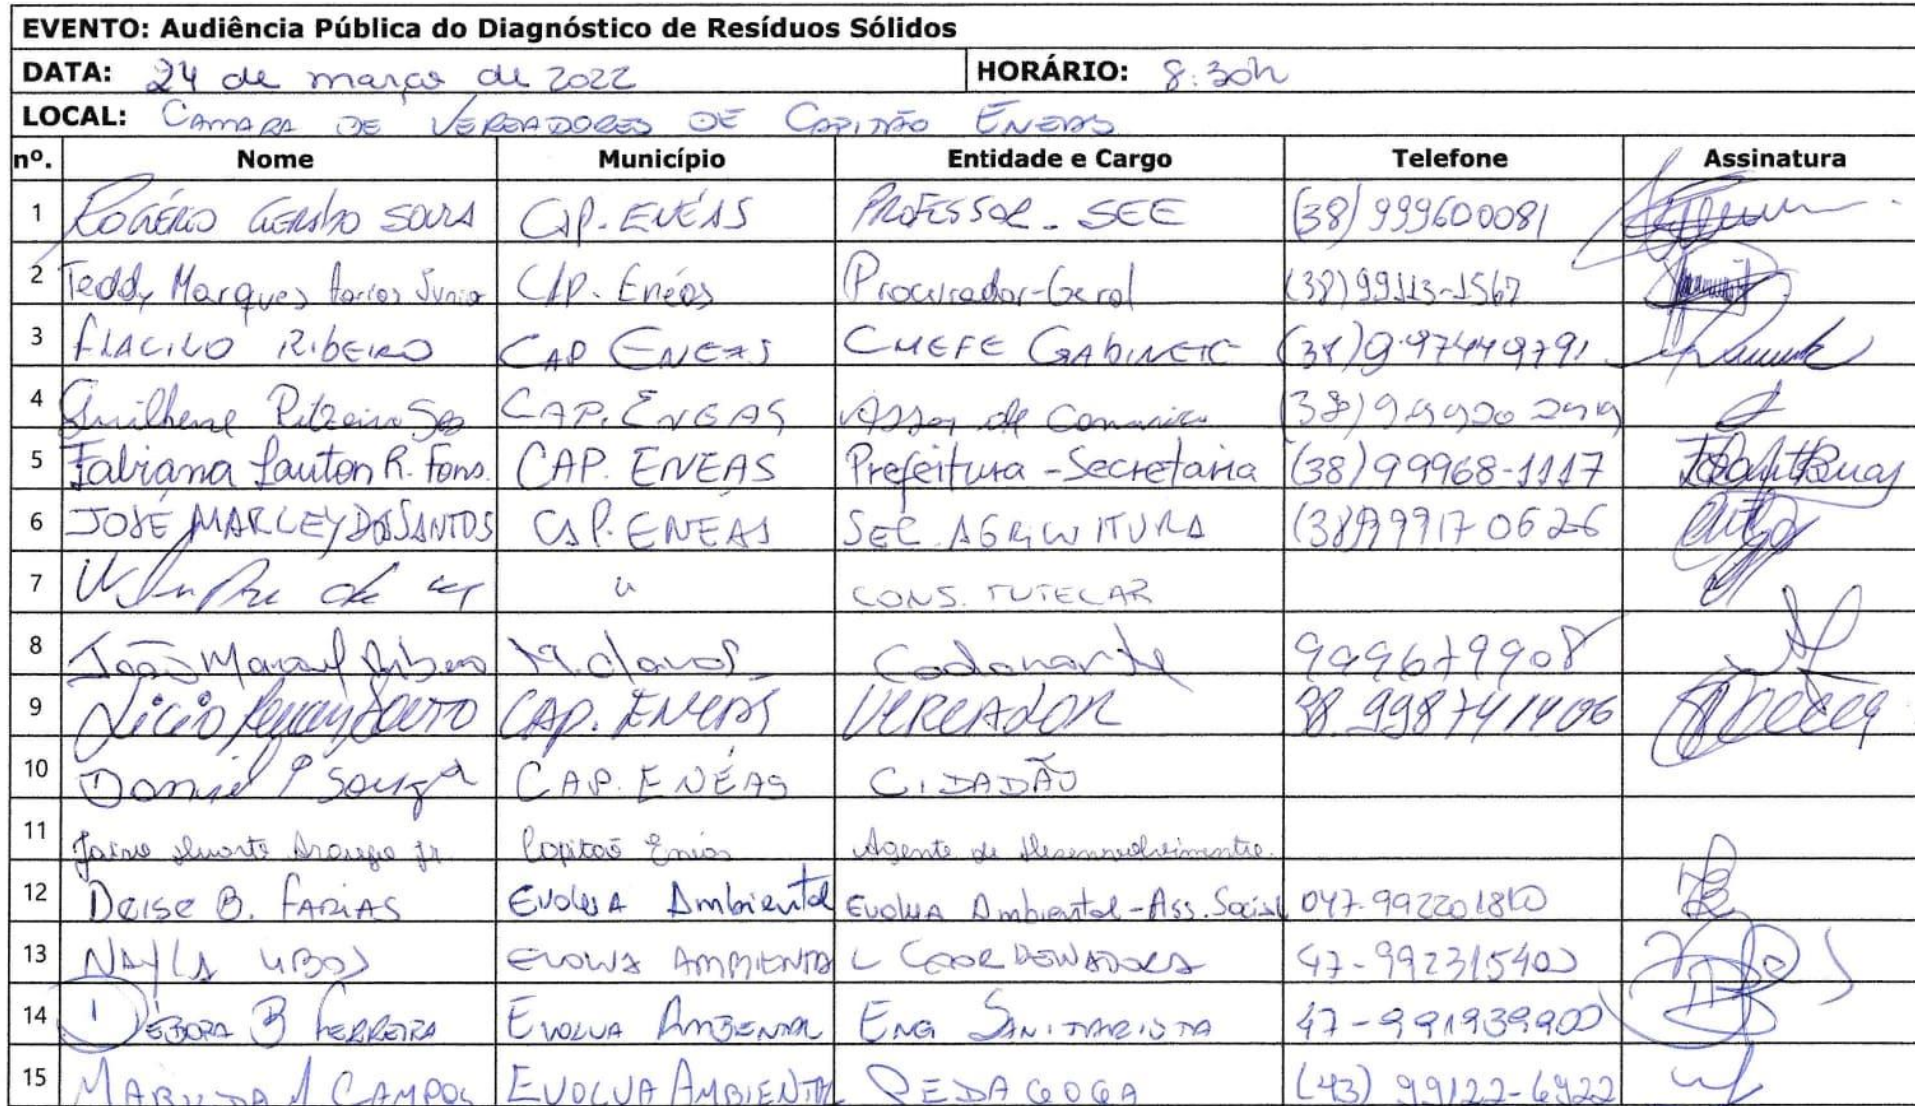 EVENTO: Audiência Pública do Diagnóstico de Resíduos Sólidos
DATA: 24 de março de 2022 HORÁRIO: 8:30h
LOCAL: CAMARA DE VEREADORES DE CAPITÃO ENEAS
nº. Nome Município Entidade e Cargo Telefone Assinatura
1 ROGÉRIO SOUSA CAP. ENÉAS PROFESSOR - SEE (38) 999600081
2 Teddy Marques Junior CAP. Enéas Procurador-Geral (38) 99113-1567
3 RIBEIRO CAP ENEAS CHEFE GABINETE (38) 9.97449791
4 Guilherme CAP. ENEAS de
5 Fabiana Lauton R. Fons. CAP. ENEAS Prefeitura - Secretaria (38) 99968-1117
6 JOSÉ MARLEY DOS SANTOS CAP. ENEAS SEC. AGRICULTURA (38) 999170626
7 " CONS. TUTELAR
8 João Ribeiro M. claros 999679908
9 Lício CAP. ENEAS VEREADOR 38. 998741406
10 Daniel P Souza CAP. ENÉAS CIDADÃO
11 Duarte Araujo jr. Capitão Enéas Agente de Desenvolvimento.
12 Deise B. FARIAS Evolua Ambiental Evolua Ambiental - Ass. Social
13 NAYLA EVOLUA AMBIENTAL COORDENADORA 47-992315400
14 DÉBORA B FERREIRA EVOLUA AMBIENTAL ENG SANITARISTA 47-991939900
15 CAMPOS EVOLUA AMBIENTAL PEDAGOGA (43) 99122-6922